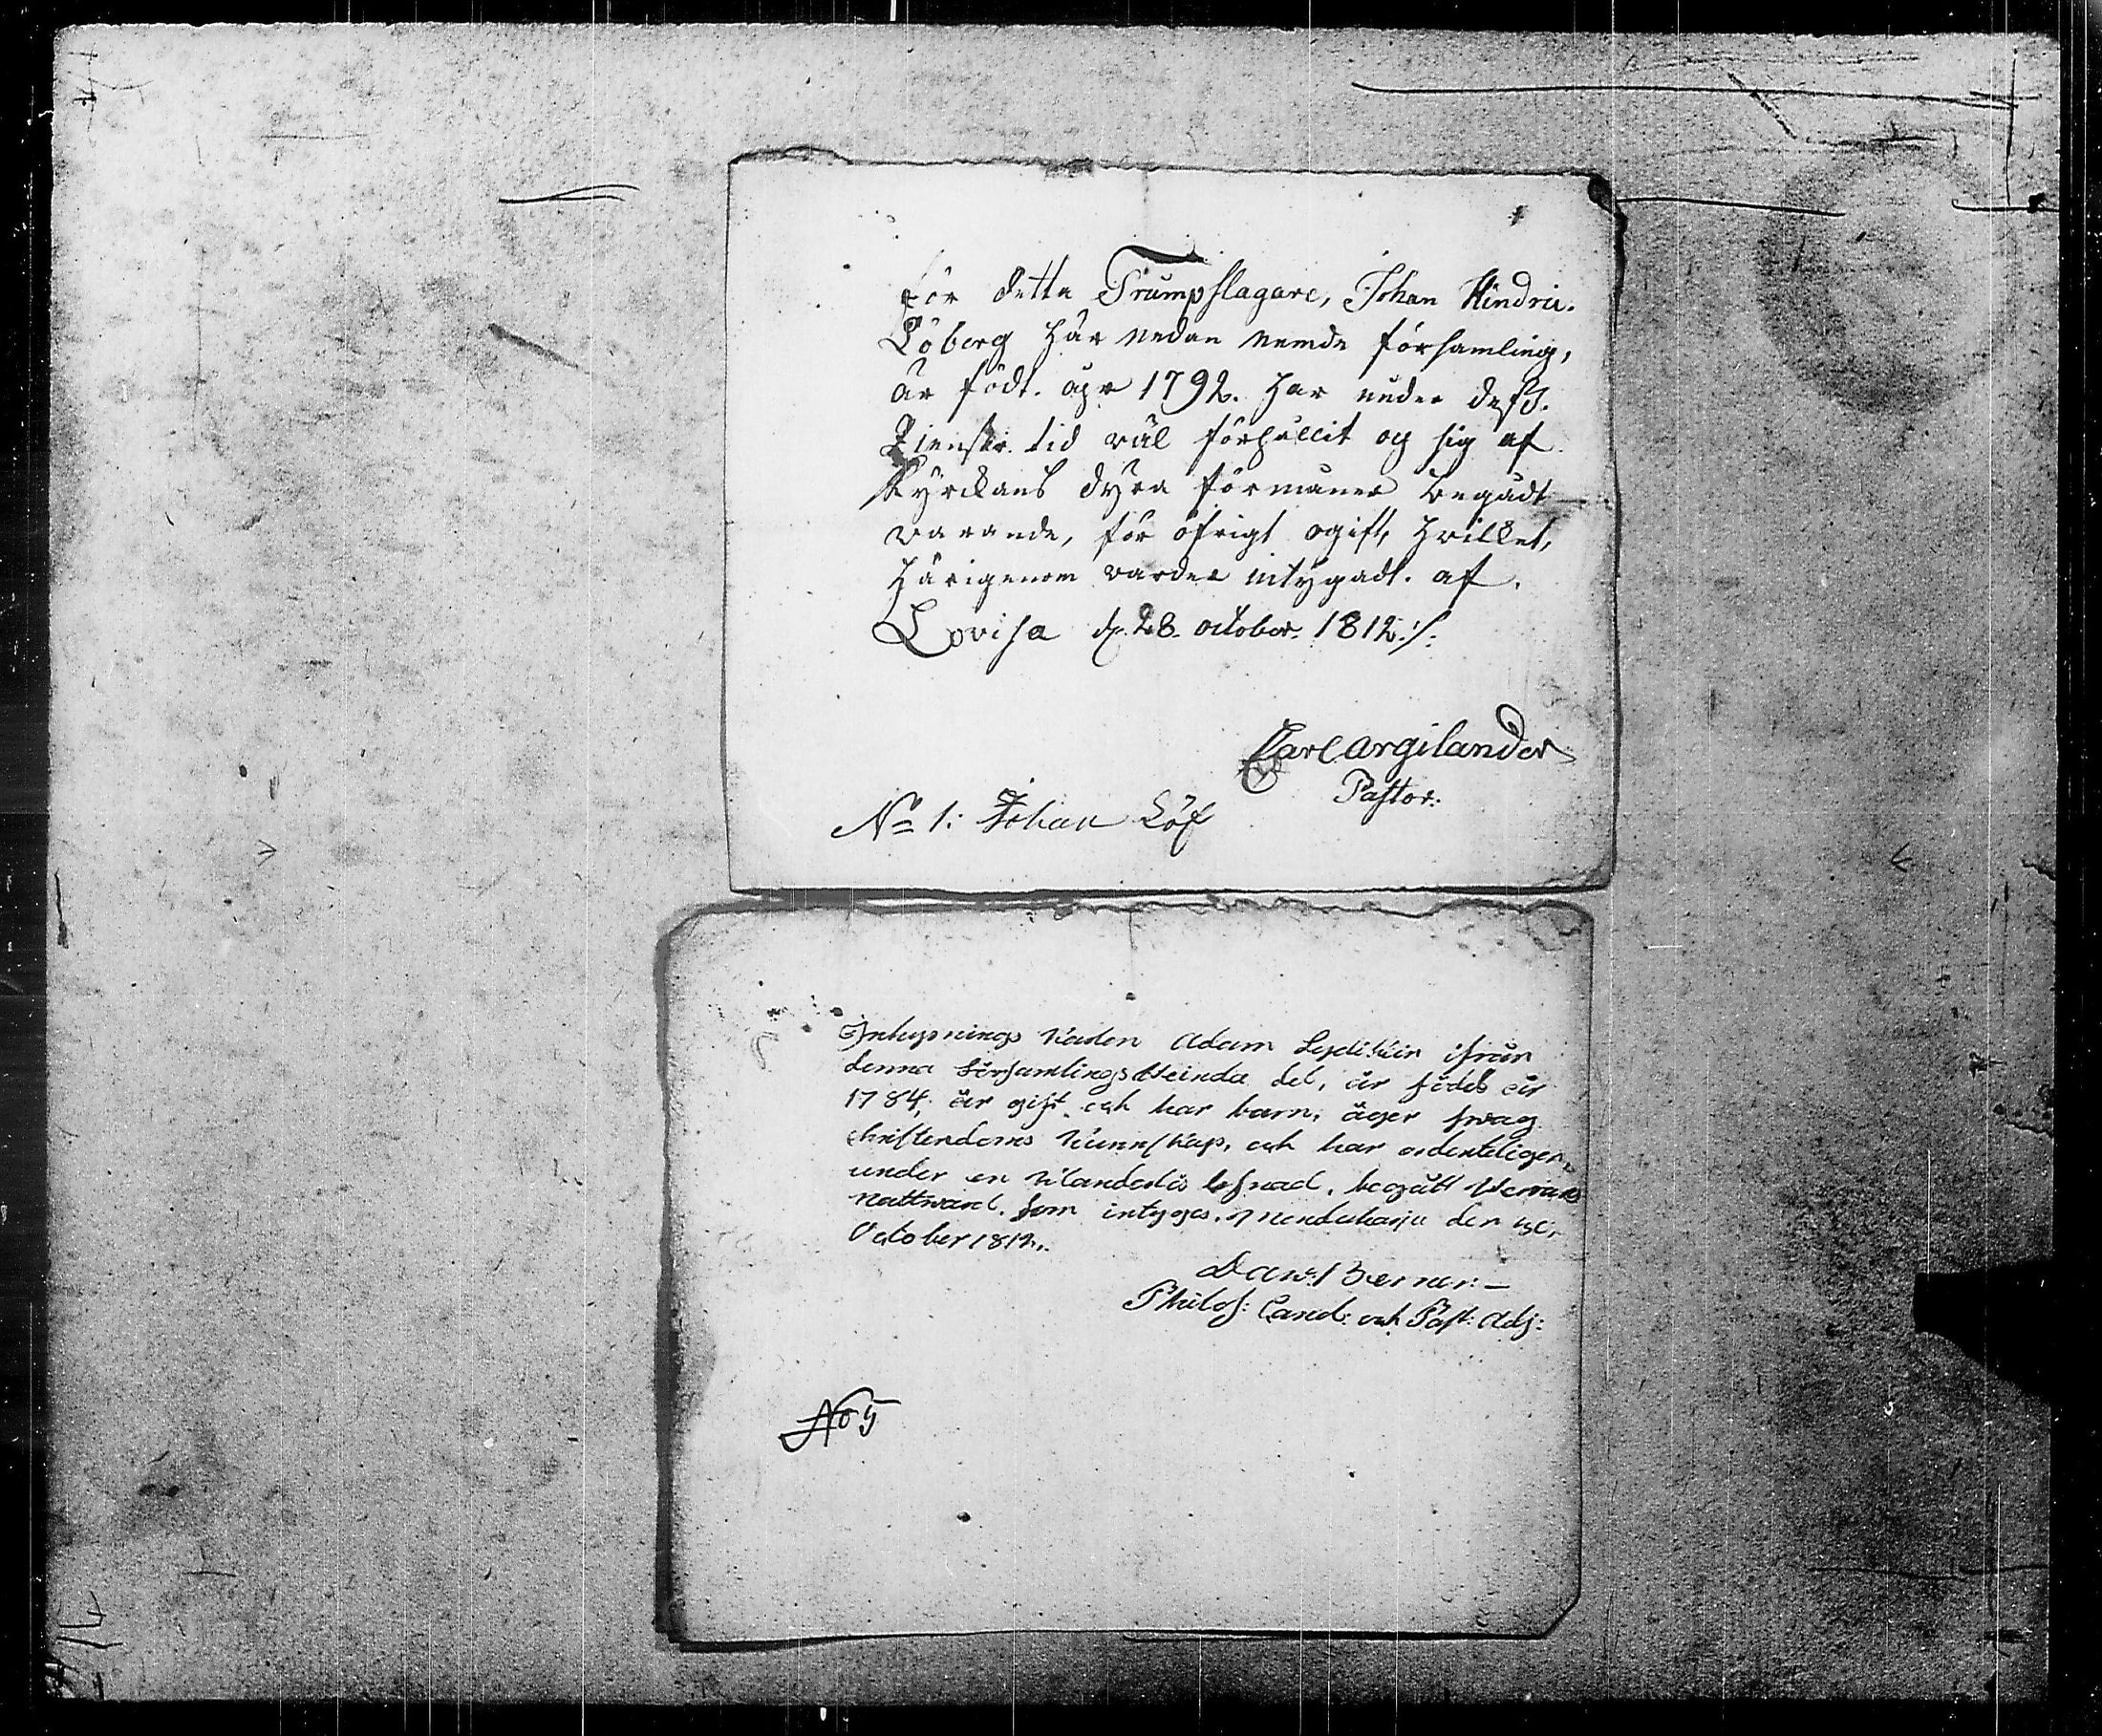 För detta Trumpslagare, Johan Hindric.
Löberg här nedan nemde församling,
är född. åhr 1792. har under dess.
Tienste. tid väl förhållit og sig af
Kyrckans dyra förmåner begådt
varande, för öfrigt ogift, hvilket,
härigenom varder intygadt. af.
Lovisa d. 28. october. 1812./.
Carl argilander
Pastor.
No 1: Johan Löf
Inhysnings Karlen Adam ifrån
denna Församlings del, är född år
1784, är gift och har barn, äger swag
christendoms Kunnskap, och har ordenteligen,
under en Klanderlös lefnad, begått Herrans
Nattward. som intygas. Mendeharju den
October 1812.
Philos: Cand: och Past: Adj:
No 5